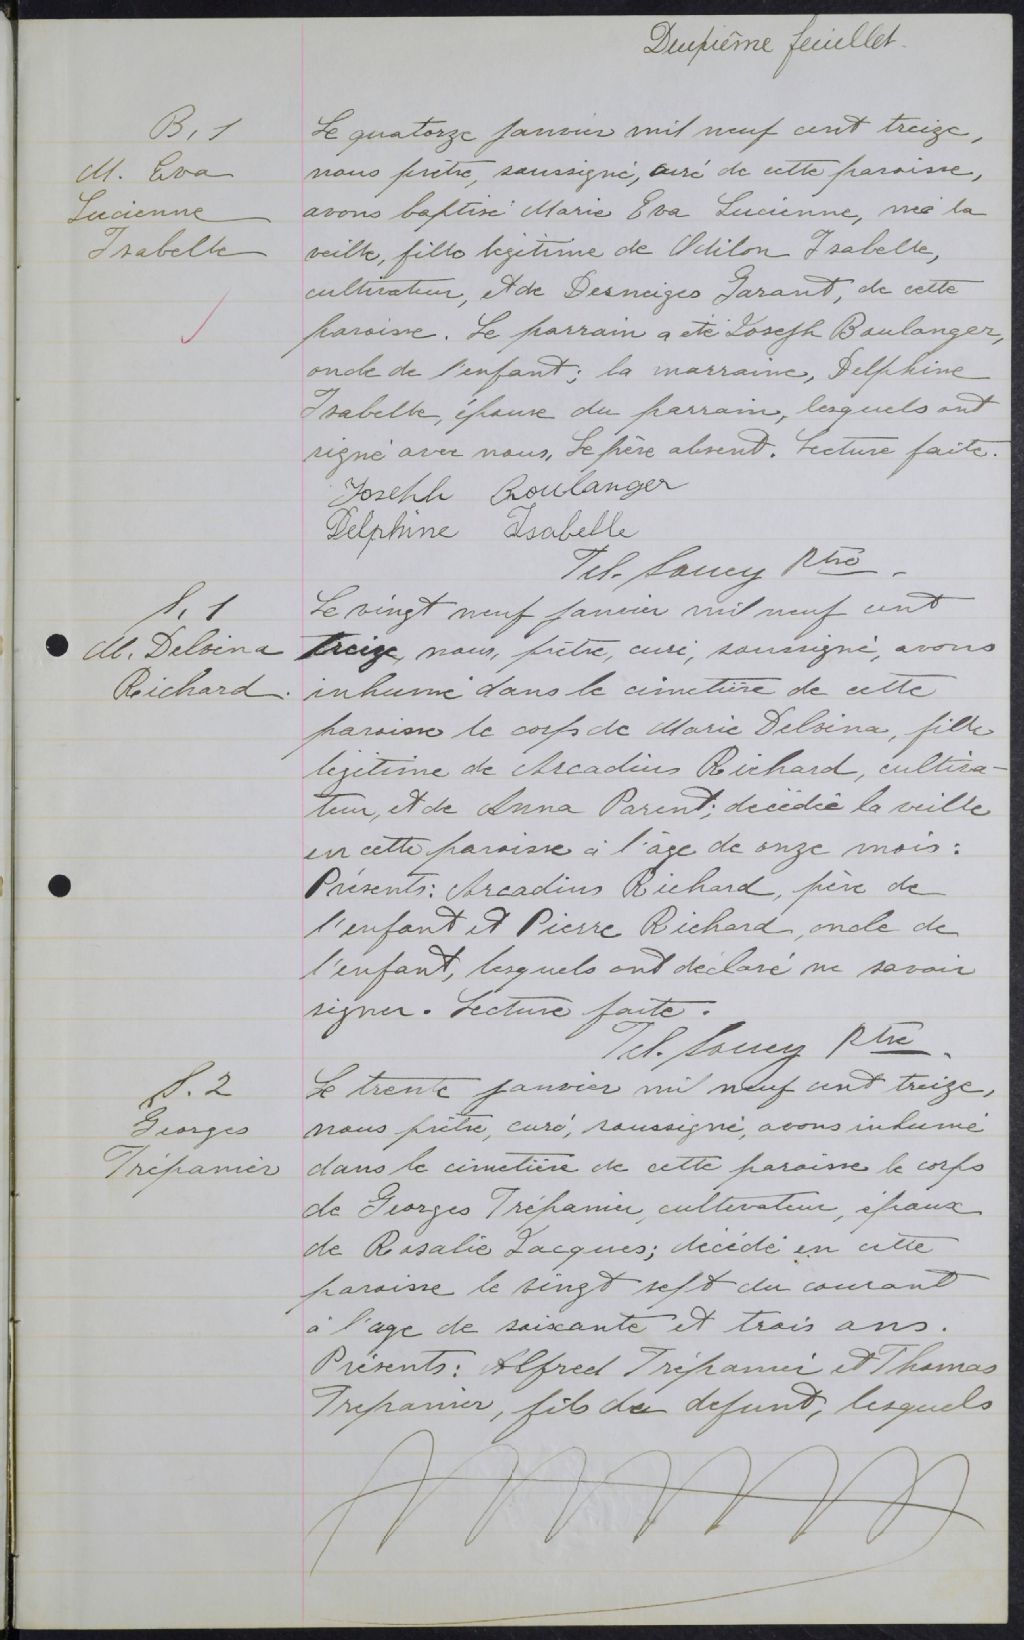 Deuxième feuillet.
B. 1
M. Eva
Lucienne
Isabelle
Le quatorze janvier mil neuf cent treize,
nous prêtre, soussigné, curé de cette paroisse,
avons baptisé Marie Eva Lucienne, née la
veille, fille légitime de Odilon Isabelle,
cultivateur, et de Desneiges Garant, de cette
paroisse. Le parrain a été Joseph Boulanger,
oncle de l'enfant; la marraine, Delphine
Isabelle, épouse du parrain, lesquels ont
signé avec nous. Le père absent. Lecture faite.
Joseph Boulanger
Delphine Isabelle
Tél. Soucy Ptre.
S. 1
M. Delvina
Richard.
Le vingt neuf janvier mil neuf cent
treize, nous, prêtre, curé, soussigné, avons
inhumé dans le cimetière de cette
paroisse le corps de Marie Delvina, fille
légitime de Arcadius Richard, cultiva-
teur, et de Anna Parent; décédée la veille
en cette paroisse à l'âge de onze mois:
Présents: Arcadius Richard, père de
l'enfant et Pierre Richard, oncle de
l'enfant, lesquels ont déclaré ne savoir
signer. Lecture faite.
Tél. Soucy Ptre.
S. 2
Georges
Trépanier
Le trente janvier mil neuf cent treize,
nous prêtre, curé, soussigné, avons inhumé
dans le cimetière de cette paroisse le corps
de Georges Trépanier, cultivateur, époux
de Rosalie Jacques; décédé en cette
paroisse le vingt sept du courant
à l'age de soixante et trois ans.
Présents: Alfred Trépanier et Thomas
Trepanier, fils du defunt, lesquels